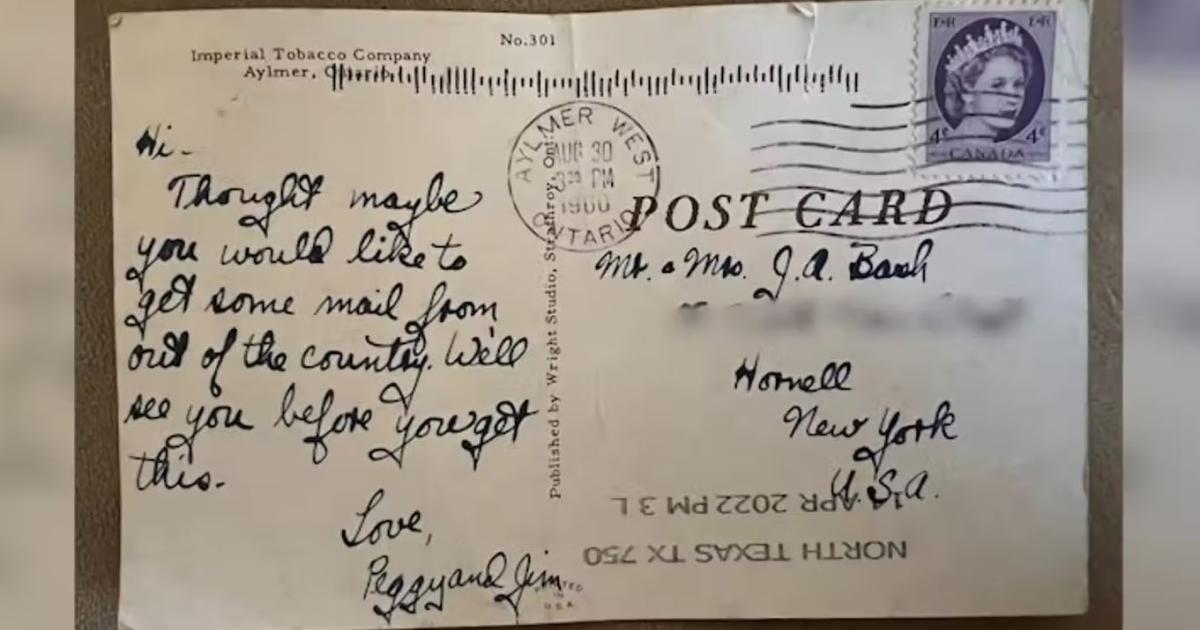 No.301
Imperial Tobacco Company
Aylmer, Ontario
E II R E II R
4¢ 4¢
CANADA
AYLMER WEST
AUG 30
PM
1960
ONTARIO
POST CARD
Published by Wright Studio, Strathroy, Ont.
Hi-
Thought maybe
you would like to
get some mail from
out of the country. We'll
see you before you get
this.
Love,
Peggy and Jim
Mr. & Mrs. J.A. Bash
Hornell
New York
U.S.A.
APR 2022 PM 3 L
NORTH TEXAS TX 750
PRINTED
IN
U.S.A.